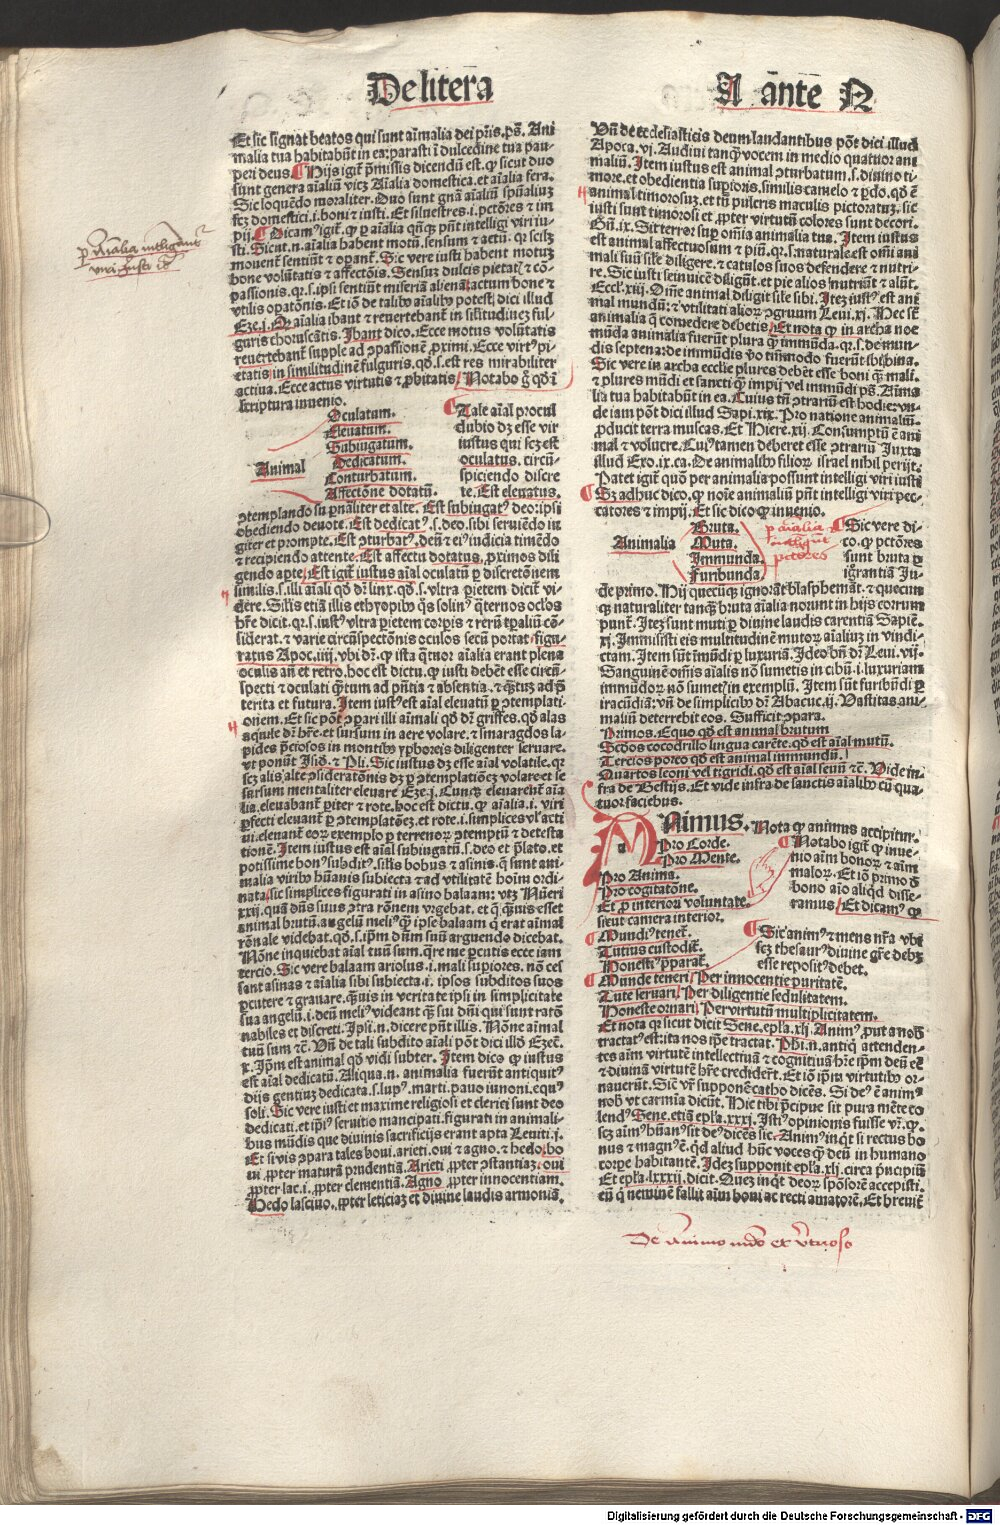 De litera
A ante N
Et sic signat beatos qui sunt aīmalia dei pr̄is. ps̄. Ani
malia tua habitabūt in ea: parasti ī dulcedine tua pau-
peri deus. Hijs igit̄ p̄missis dicendū est. ꝙ sicut duo
sunt genera aīaliū vicz Aīalia domestica. et aīalia fera.
Sic loquēdo moraliter. Duo sunt gn̄a aīaliū spūaliuz
scz domestici .i. boni ⁊ iusti. Et siluestres .i. pctōres ⁊ im
pij. Dicam⁹ igit̄. ꝙ ꝑ aīalia qn̄qꝫ pn̄t intelligi viri iu-
sti. Sicut .n. aīalia habent motū. sensum ⁊ actū. qꝛ scilz
mouent̄ sentiūt ⁊ opant̄. Sic vere iusti habent motuz
bone volūtatis ⁊ affectōis. Sensuz dulcis pietat̄ ⁊ cō-
passionis. qꝛ .s. ipsi sentiūt miseriā alienā: actum bone ⁊
vtilis opatōnis. Et iō de talibꝰ aīalibꝰ potest dici illud
Eze. j. Qꝛ aīalia ibant ⁊ reuertebant̄ in silitudinez ful-
guris choruscātis. Ibant dico. Ecce motus volūtatis
reuertebant̄ supple ad ꝯpassionē ꝓximi. Ecce virt⁹ pi-
etatis in similitudinē fulguris. qd̄ .s. est res mirabiliter
actiua. Ecce actus virtutis ⁊ ꝓbitatis. Notabo g̊ qd̄ ī
scriptura inuenio.
Animal
Oculatum.
Eleuatum.
Subiugatum.
Dedicatum.
Conturbatum.
Affectōne dotatū.
Tale aīal procul
dubio dz esse vir
iustus qui scz est
oculatus. circū-
spiciendo discre
te. Est eleuatus.
ꝯtemplando supnaliter et alte. Est subiugat⁹ deo: ipsi
obediendo deuote. Est dedicat⁹ .s. deo. sibi seruiēdo iu-
giter et prompte. Est ꝯturbat⁹. deū ⁊ ei⁹ iudicia timēdo
⁊ recipiendo attente. Est affectu dotatus. proximos dili
gendo apte. Est igit̄ iustus aīal oculatū ꝑ discretōnem
similis .s. illi aīali qd̄ dr̄ linx. qd̄ .s. vltra parietem dicit̄ vi
dere. Silis etiā illis ethyopibꝰ q̄s solin⁹ q̄ternos oclos
hr̄e dicit. qꝛ .s. iust⁹ vltra parietem corpis ⁊ rerū tꝑaliū cō-
siderat. ⁊ varie circūspectōnis oculos secū portat figu-
ratus Apoc. iiij. vbi dr̄. ꝙ ista q̄tuor aīalia erant plena
oculis an̄ et retro. hoc est dictu. ꝙ iusti debēt esse circū-
specti ⁊ oculati q̄tum ad pn̄tia ⁊ absentia. ⁊ q̄tuz ad p̄
terita et futura. Item iust⁹ est aīal eleuatū ꝑ ꝯtemplati-
onem. Et sic pōt ꝯpari illi aīmali qd̄ dr̄ griffes. qd̄ alas
aquile dr̄ hr̄e. et sursum in aere volare. ⁊ smaragdos la-
pides p̄ciosos in montibꝰ yꝑboreis diligenter seruare.
vt ponūt Isid. ⁊ Pli. Sic iustus dz esse aīal volatile. qꝛ
scz alis alte ꝯsideratōnis dz ꝑ ꝯtemplatiōez volare et se
sursum mentaliter eleuare Eze. j. Cunqꝫ eleuarent̄ aīa
lia. eleuabant̄ ꝑiter ⁊ rote. hoc est dictu. ꝙ aīalia .i. viri
ꝑfecti eleuant̄ ꝑ ꝯtemplatōez. et rote .i. simplices vl̄ acti
ui. eleuant̄ eoꝝ exemplo ꝑ terrenoꝝ ꝯtemptū ⁊ detesta
tionē. Item iustus est aīal subiugatū .s. deo et p̄lato. et
potissime bon⁹ subdit⁹. silis bobus ⁊ asinis. q̄ sunt ani-
malia viribꝰ hūanis subiecta ⁊ ad vtilitatē hoīm ordi-
nata. sic simplices figurati in asino balaam: vtz Nūeri
xxij. quā dn̄s suus ꝯtra rōnem vrgebat. et q̄ q̄uis esset
animal brutū. angelū meli⁹ qꝫ ipse balaam q̄ erat aīmal
rōnale videbat. qd̄ .s. ipm dn̄m suū arguendo dicebat.
Nōne inquiebat aīal tuū sum. q̄re me percutis ecce iam
tercio. Sic vere balaam ariolus .i. mali supiores. nō ces
sant asinas ⁊ aīalia sibi subiecta .i. ipsos subditos suos
ꝑcutere ⁊ grauare. q̄uis in veritate ipsi in simplicitate
sua angelū .i. deū meli⁹ videant qꝫ sui dn̄i qui sunt ratō
nabiles et discreti. Ipsi .n. dicere pn̄t illis. Nōne aīmal
tuū sum ⁊c. Vn̄ de tali subdito aīali pōt dici illd̄ Ezech.
x. Ipm̄ est animal qd̄ vidi subter. Item dico ꝙ iustus
est aīal dedicatū. Aliqua .n. animalia fuerūt antiquit⁹
dijs gentiuz dedicata .s. lup⁹. marti. pauo iunoni. equ⁹
soli. Sic vere iusti et maxime religiosi et clerici sunt deo
dedicati. et ip̄i⁹ seruitio mancipati. figurati in animali-
bus mūdis que diuinis sacrificijs erant apta Leuiti. j.
Et si vis ꝯpara tales boui. arieti. oui ⁊ agno. ⁊ hedo. bo
ui ꝓpter maturā prudentiā. Arieti ꝓpter ꝯstantiaz. oui
ꝓpter lac .i. ꝓpter clementiā. Agno ꝓpter innocentiam.
Hedo lasciuo. ꝓpter leticiaz et diuine laudis armoniā.
Vn̄ de ecclesiasticis deum laudantibus pōt dici illud
Apoca. vj. Audiui tanqꝫ vocem in medio quatuor ani
maliū. Item iustus est animal ꝯturbatum .s. diuino ti-
more. et obedientia supioris. similis camelo ⁊ pardo. qd̄ ē
animal timorosuz. et tn̄ pulcris maculis pictoratuz. sic
iusti sunt timorosi et ꝓpter virtutū colores sunt decori.
Gn̄. ix. Sit terror sup om̄ia animalia tua. Item iustus
est animal affectuosum ⁊ piū. qꝛ .s. naturale est om̄i ani
mali suū sile diligere. ⁊ catulos suos defendere ⁊ nutri-
re. Sic iusti seinuicē diligūt. et pie alios nutriūt ⁊ alūt.
Eccl. xiij. Om̄e animal diligit sile sibi. Itez iust⁹ est ani
mal mundū: ⁊ vtilitati alioꝝ ꝯgruum Leui. xj. Hec st̄
animalia q̄ comedere debetis. Et nota ꝙ in archa noe
mūda animalia fuerūt plura qꝫ immūda. qꝛ .s. de mun-
dis septena: de immūdis vo tm̄modo fuerūt ibi bina.
Sic vere in archa ecclie plures debēt esse boni qꝫ mali.
⁊ plures mūdi et sancti qꝫ impij vel immūdi ps̄. Aīma
lia tua habitabūt in ea. Cuius tn̄ ꝯtrariū est hodie: vn-
de iam pōt dici illud Sapi. xix. Pro natione animaliū.
ꝓducit terra muscas. Et Hiere. xij. Consumptū ē ani
mal ⁊ volucre. Cui⁹ tamen deberet esse ꝯtrariū Juxta
illud Exo. ix. ca. De animalibꝰ filioꝝ israel nihil perijt.
Patet igit̄ quō per animalia possunt intelligi viri iusti
Sz adhuc dico. ꝙ noīe animaliū pn̄t intelligi viri pec-
catores ⁊ impij. Et sic dico ꝙ inuenio.
Animalia
Bruta.
Muta.
Immunda.
Furibunda.
Sic vere di-
co. ꝙ pctōres
sunt bruta ꝑ
igr̄antiā Ju-
de primo. Hij quecūqꝫ ignorāt blasphemāt. ⁊ quecum
qꝫ naturaliter tanqꝫ bruta aīalia norunt in hijs corrum
punt̄. Itez sunt muti ꝑ diuine laudis carentiā Sapiē.
xj. Immisisti eis multitudinē mutoꝝ aīaliuz in vindi-
ctam. Item sūt īmūdi ꝑ luxuriā. Ideo bn̄ dr̄ Leui. vij.
Sanguinē om̄is aīalis nō sumetis in cibū .i. luxuriam
immūdoꝝ nō sumet⁹ in exemplū. Item sūt furibūdi ꝑ
iracūdiā: vn̄ de simplicibꝰ dr̄ Abacuc. ij. Vastitas ani-
maliū deterrebit eos. Sufficit ꝯpara.
Primos. Equo qd̄ est animal brutum
Scdos cocodrillo lingua carēte. qd̄ est aīal mutū.
Tercios porco qd̄ est animal immundū.
Quartos leoni vel tigridi. qd̄ est aīal seuū ⁊c. Vide in-
fra de Bestijs. Et vide infra de sanctis aīalibꝰ cū qua-
tuor faciebus.
Animus. Nota ꝙ animus accipitur.
Pro Corde.
Pro Mente.
Pro Anima.
Pro cogitatōne.
Et ꝓ interiori voluntate.
Notabo igit̄ ꝙ inue-
nio aīm bonoꝝ ⁊ aīm
maloꝝ. Et iō primo d̄
bono aīo aliqd̄ disse-
ramus. Et dicam⁹ ꝙ
sicut camera interior.
Mundi⁹ tenet̄.
Tutius custodit̄.
Honesti⁹ p̄parat̄.
Sic anim⁹ ⁊ mens nr̄a vbi
scz thesaur⁹ diuine gr̄e debz
esse reposit⁹ debet.
Munde teneri. Per innocentie puritatē.
Tute seruari. Per diligentie sedulitatem.
Honeste ornari. Per virtutū multiplicitatem.
Et nota ꝙ sicut dicit Sene. epl̄a. xlj. Anim⁹. prout a nob̄
tractat⁹ est: ita nos ip̄e tractat. Phi .n. antiq̄ attenden-
tes aīm virtutē intellectiuā ⁊ cognitiuā hr̄e ip̄m deū ee
⁊ diuinā virtutē hr̄e crediderūt. Et iō ip̄m virtutibꝰ or-
nauerūt. Sic vr̄ supponē catho dicēs. Si de⁹ ē anim⁹
nob̄ vt carmīa dicūt. Hic tibi p̄cipue sit pura mēte co
lend⁹. Sene. etiā epl̄a. xxxj. Isti⁹ opinionis fuisse vr̄. ꝙ
scz aīm⁹ hūan⁹ sit de⁹ dicēs sic. Anim⁹ inq̄t si rectus bo
nus ⁊ magn⁹ ē. qd aliud hūc voces qꝫ deū in humano
corpe habitantē. Idez supponit epl̄a. xlj. circa p̄ncipiū
Et epl̄a. lxxxij. dicit. Quez inq̄t deoꝝ spōsorē accepisti.
eū q̄ neminē fallit aīm boni ac recti amatorē. Et breuit̄
ꝑ aīalia intligunt̄
viri iusti
ꝑ aīalia
intligūt̄
pctores
De Animo mūdo et Virtuoso
Digitalisierung gefördert durch die Deutsche Forschungsgemeinschaft - DFG